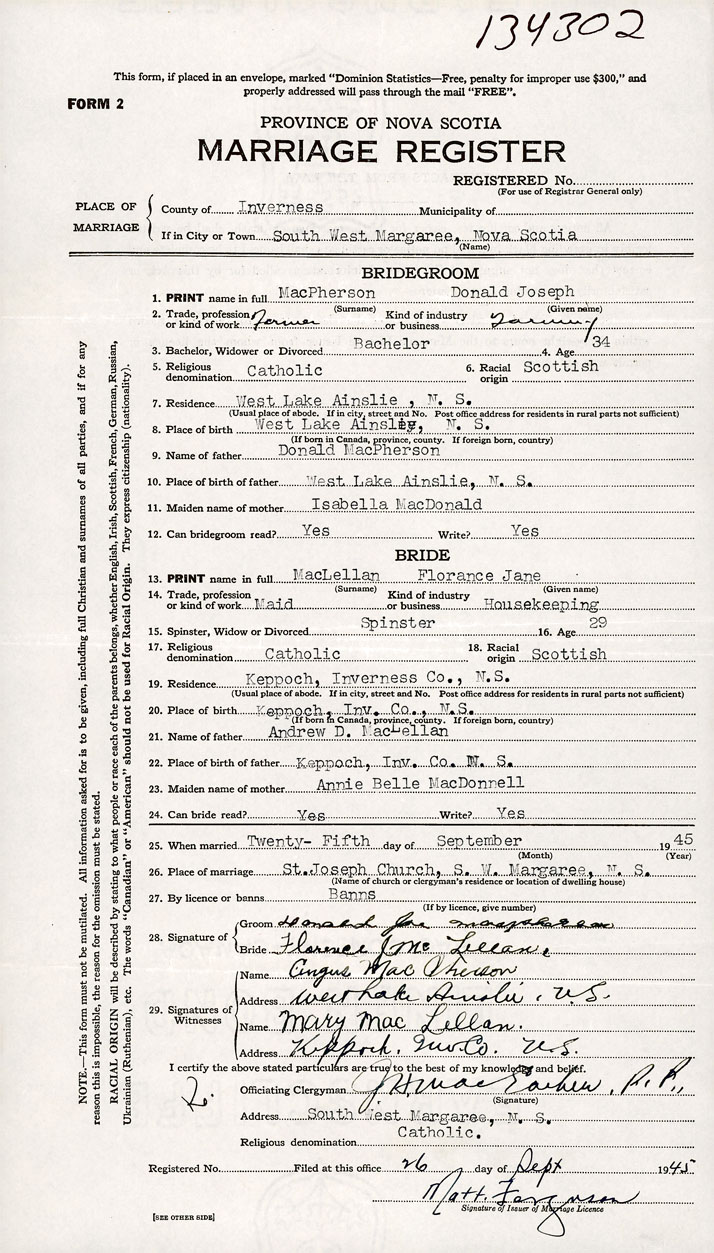 134302
This form, if placed in an envelope, marked "Dominion Statistics—Free, penalty for improper use $300," and
properly addressed will pass through the mail "FREE".
FORM 2
PROVINCE OF NOVA SCOTIA
MARRIAGE REGISTER
REGISTERED No.
(For use of Registrar General only)
PLACE OF MARRIAGE
County of Inverness Municipality of
If in City or Town South West Margaree, Nova Scotia
(Name)
BRIDEGROOM
1. PRINT name in full MacPherson Donald Joseph
(Surname) (Given name)
2. Trade, profession or kind of work Farmer Kind of industry or business Farming
3. Bachelor, Widower or Divorced Bachelor 4. Age 34
5. Religious denomination Catholic 6. Racial origin Scottish
7. Residence West Lake Ainslie , N. S.
(Usual place of abode. If in city, street and No. Post office address for residents in rural parts not sufficient)
8. Place of birth West Lake Ainslie, N. S.
(If born in Canada, province, county. If foreign born, country)
9. Name of father Donald MacPherson
10. Place of birth of father West Lake Ainslie, N. S.
11. Maiden name of mother Isabella MacDonald
12. Can bridegroom read? Yes Write? Yes
BRIDE
13. PRINT name in full MacLellan Florance Jane
(Surname) (Given name)
14. Trade, profession or kind of work Maid Kind of industry or business Housekeeping
15. Spinster, Widow or Divorced Spinster 16. Age 29
17. Religious denomination Catholic 18. Racial origin Scottish
19. Residence Keppoch, Inverness Co., N.S.
(Usual place of abode. If in city, street and No. Post office address for residents in rural parts not sufficient)
20. Place of birth Keppoch, Inv. Co., N.S.
(If born in Canada, province, county. If foreign born, country)
21. Name of father Andrew D. MacLellan
22. Place of birth of father Keppoch, Inv. Co. N. S.
23. Maiden name of mother Annie Belle MacDonnell
24. Can bride read? Yes Write? Yes
25. When married Twenty- Fifth day of September 1945
(Month) (Year)
26. Place of marriage St.Joseph Church, S. W. Margaree, N. S.
(Name of church or clergyman's residence or location of dwelling house)
27. By licence or banns Banns
(If by licence, give number)
28. Signature of
Groom Donald Jos macpherson
Bride Florence J Mc Lellan.
29. Signatures of Witnesses
Name Angus Mac Pherson
Address West Lake Ainslie. N.S.
Name Mary Mac Lellan.
Address Keppoch. Inv Co. N.S.
I certify the above stated particulars are true to the best of my knowledge and belief.
Officiating Clergyman J H Mac Eachen, P.P.,
(Signature)
Address South West Margaree, N. S.
Religious denomination Catholic.
Registered No. Filed at this office 26 day of Sept 1945
Matt. Ferguson
Signature of Issuer of Marriage Licence
[SEE OTHER SIDE]
NOTE.—This form must not be mutilated. All information asked for is to be given, including full Christian and surnames of all parties, and if for any
reason this is impossible, the reason for the omission must be stated.
RACIAL ORIGIN will be described by stating to what people or race each of the parents belongs, whether English, Irish, Scottish, French, German, Russian,
Ukrainian (Ruthenian), etc. The words "Canadian" or "American" should not be used for Racial Origin. They express citizenship (nationality).